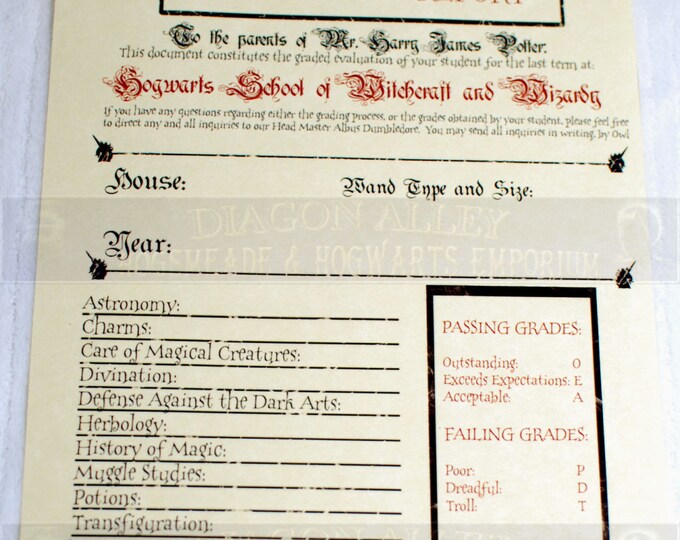 To the parents of Mr. Harry James Potter.
This document constitutes the graded evaluation of your student for the last term at:
Hogwarts School of Witchcraft and Wizardy
If you have any questions regarding either the grading process, or the grades obtained by your student, please feel free
to direct any and all inquiries to our Head Master Albus Dumbledore. You may send all inquiries in writing, by Owl
House:
Wand Type and Size:
DIAGON ALLEY
Year:
HOGSMEADE & HOGWARTS EMPORIUM
Astronomy:
Charms:
Care of Magical Creatures:
Divination:
Defense Against the Dark Arts:
Herbology:
History of Magic:
Muggle Studies:
Potions:
Transfiguration:
PASSING GRADES:
Outstanding: O
Exceeds Expectations: E
Acceptable: A
FAILING GRADES:
Poor: P
Dreadful: D
Troll: T